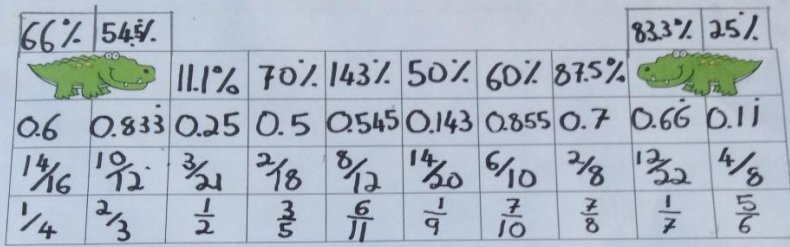 66% 54.5% 83.3% 25%
11.1% 70% 143% 50% 60% 87.5%
0.6 0.833̇ 0.25 0.5 0.545 0.143 0.855 0.7 0.66̇ 0.11̇
14/16 10/12 3/21 2/18 8/12 14/20 6/10 2/8 12/22 4/8
1/4 2/3 1/2 3/5 6/11 1/9 7/10 7/8 1/7 5/6